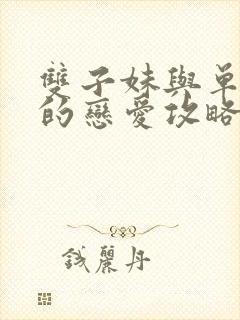 雙子妹與單
的戀愛攻略
錢麗丹